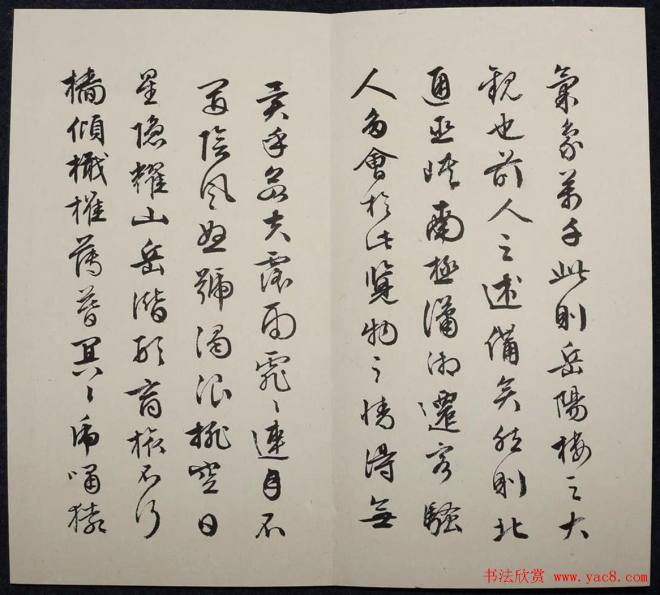 氣象萬千此則岳陽樓之大
觀也前人之述備矣然則北
通巫峽南極瀟湘遷客騷
人多會於此覽物之情得無
異乎若夫霪雨霏〻連月不
開陰風怒號濁浪排空日
星隱耀山岳潛形商旅不行
檣傾檝摧薄暮冥〻虎嘯猿
书法欣赏 www.yac8.com